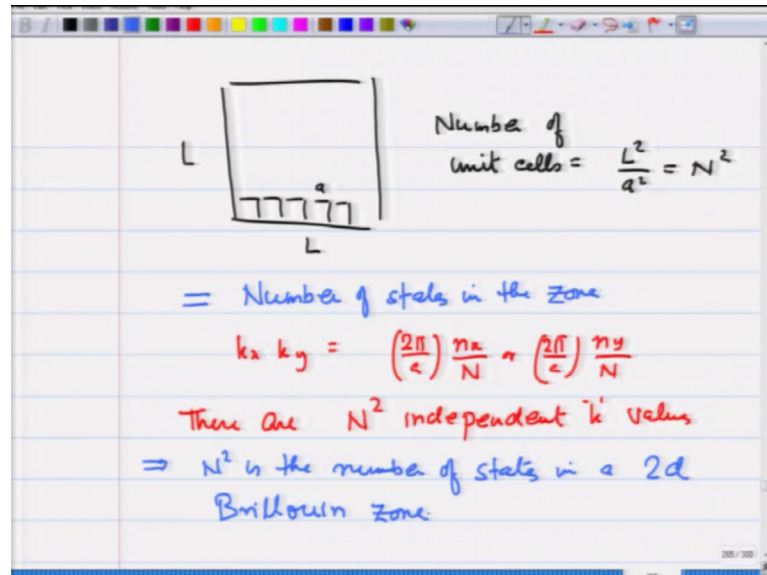 Number of
L
unit cells = L²/a² = N²
a
L
= Number of states in the zone
kx ky = (2π/a) nx/N × (2π/a) ny/N
There are N² independent 'k' values
⇒ N² is the number of states in a 2d
Brillouin zone.
265 / 300